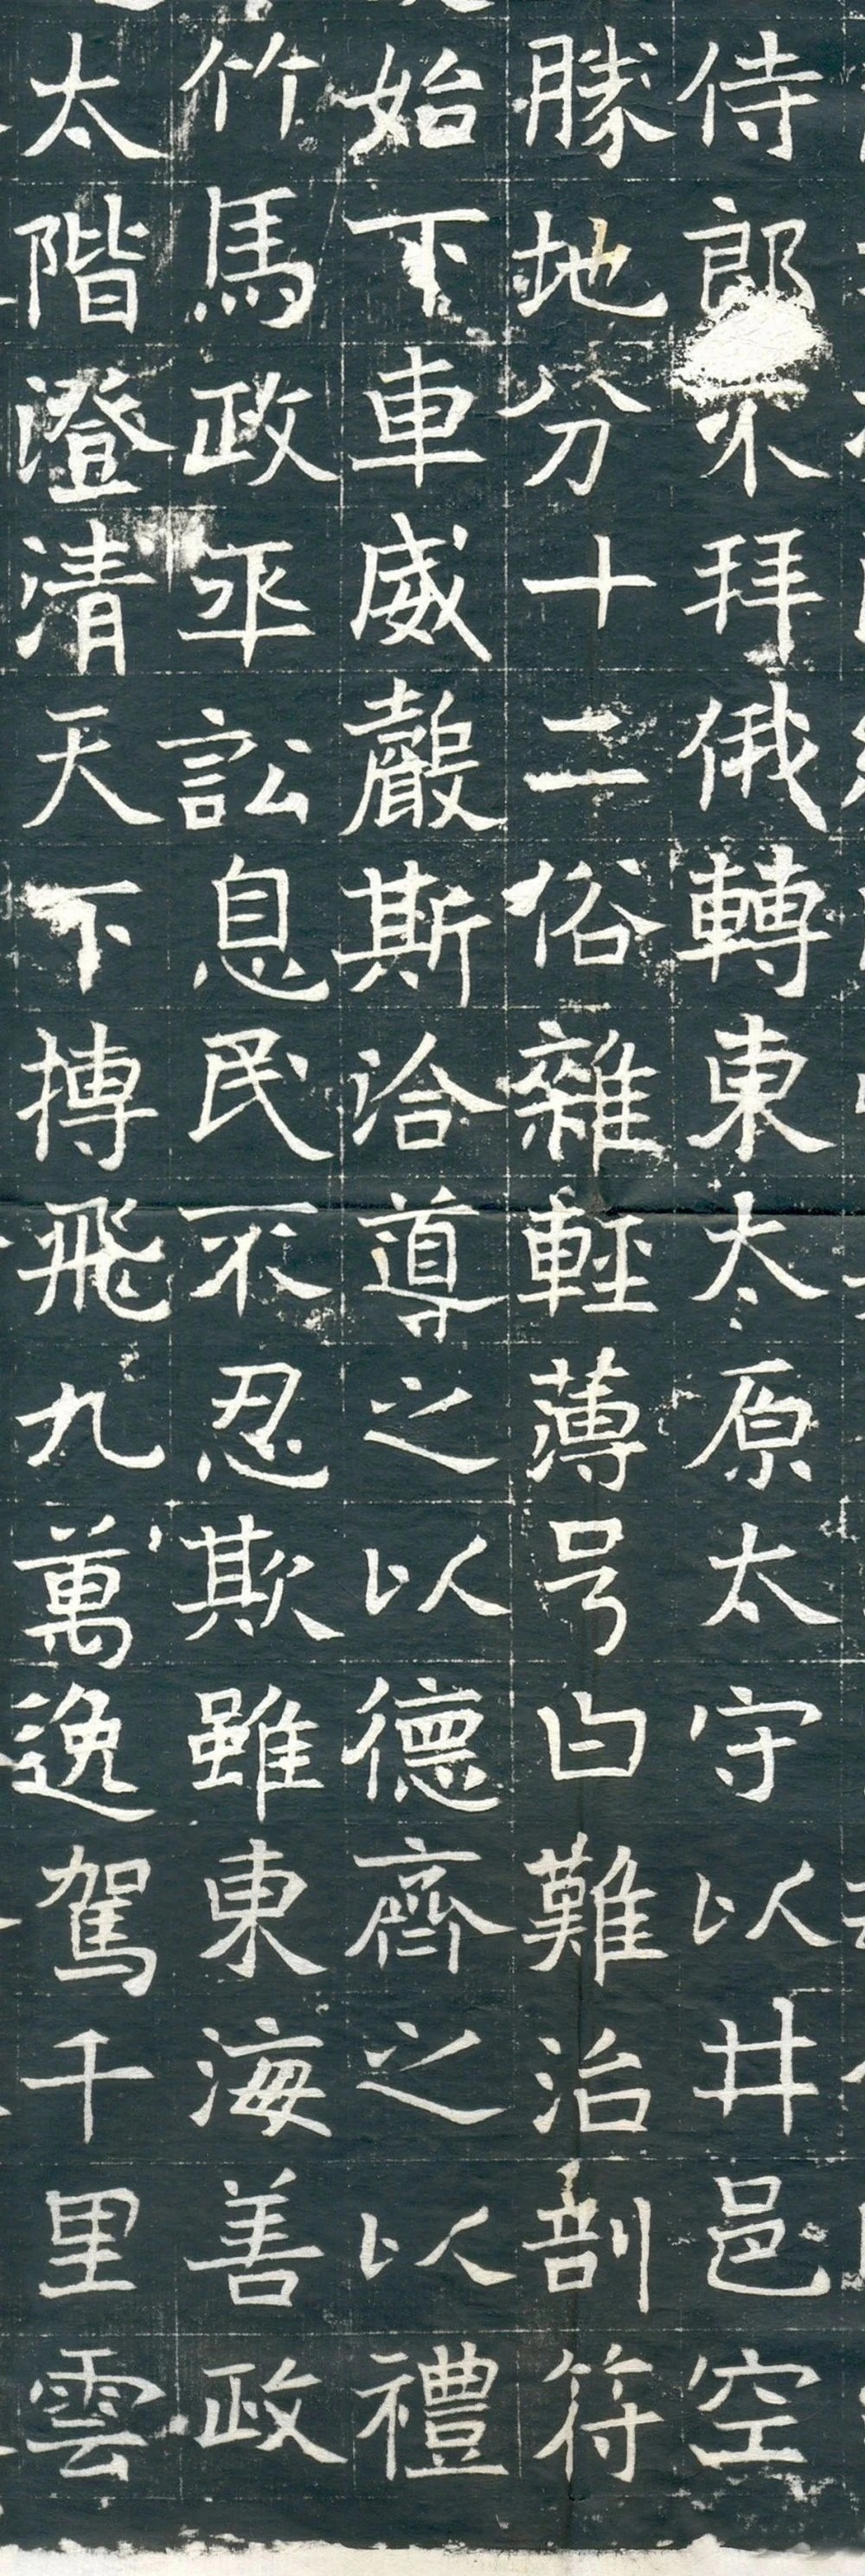 侍郎不拜俄轉東太原太守以井邑空
勝地分十二俗雜輕薄号曰難治剖符
始下車威嚴斯洽導之以德齊之以禮
竹馬政平訟息民不忍欺雖東海善政
太階澄清天下搏飛九萬逸駕千里雲